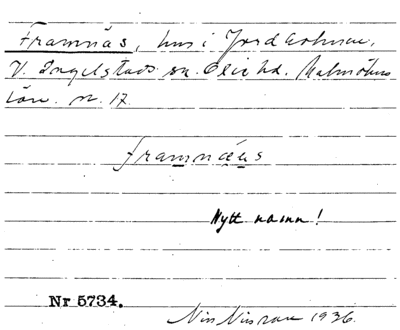 Framnäs, hus i Jordholmen,
V. Ingelstads sn. Oxie hd. Malmöhus
län. nr. 17
framnäus
Nytt namn!
Nr 5734.
Nils Nilsson 1936.